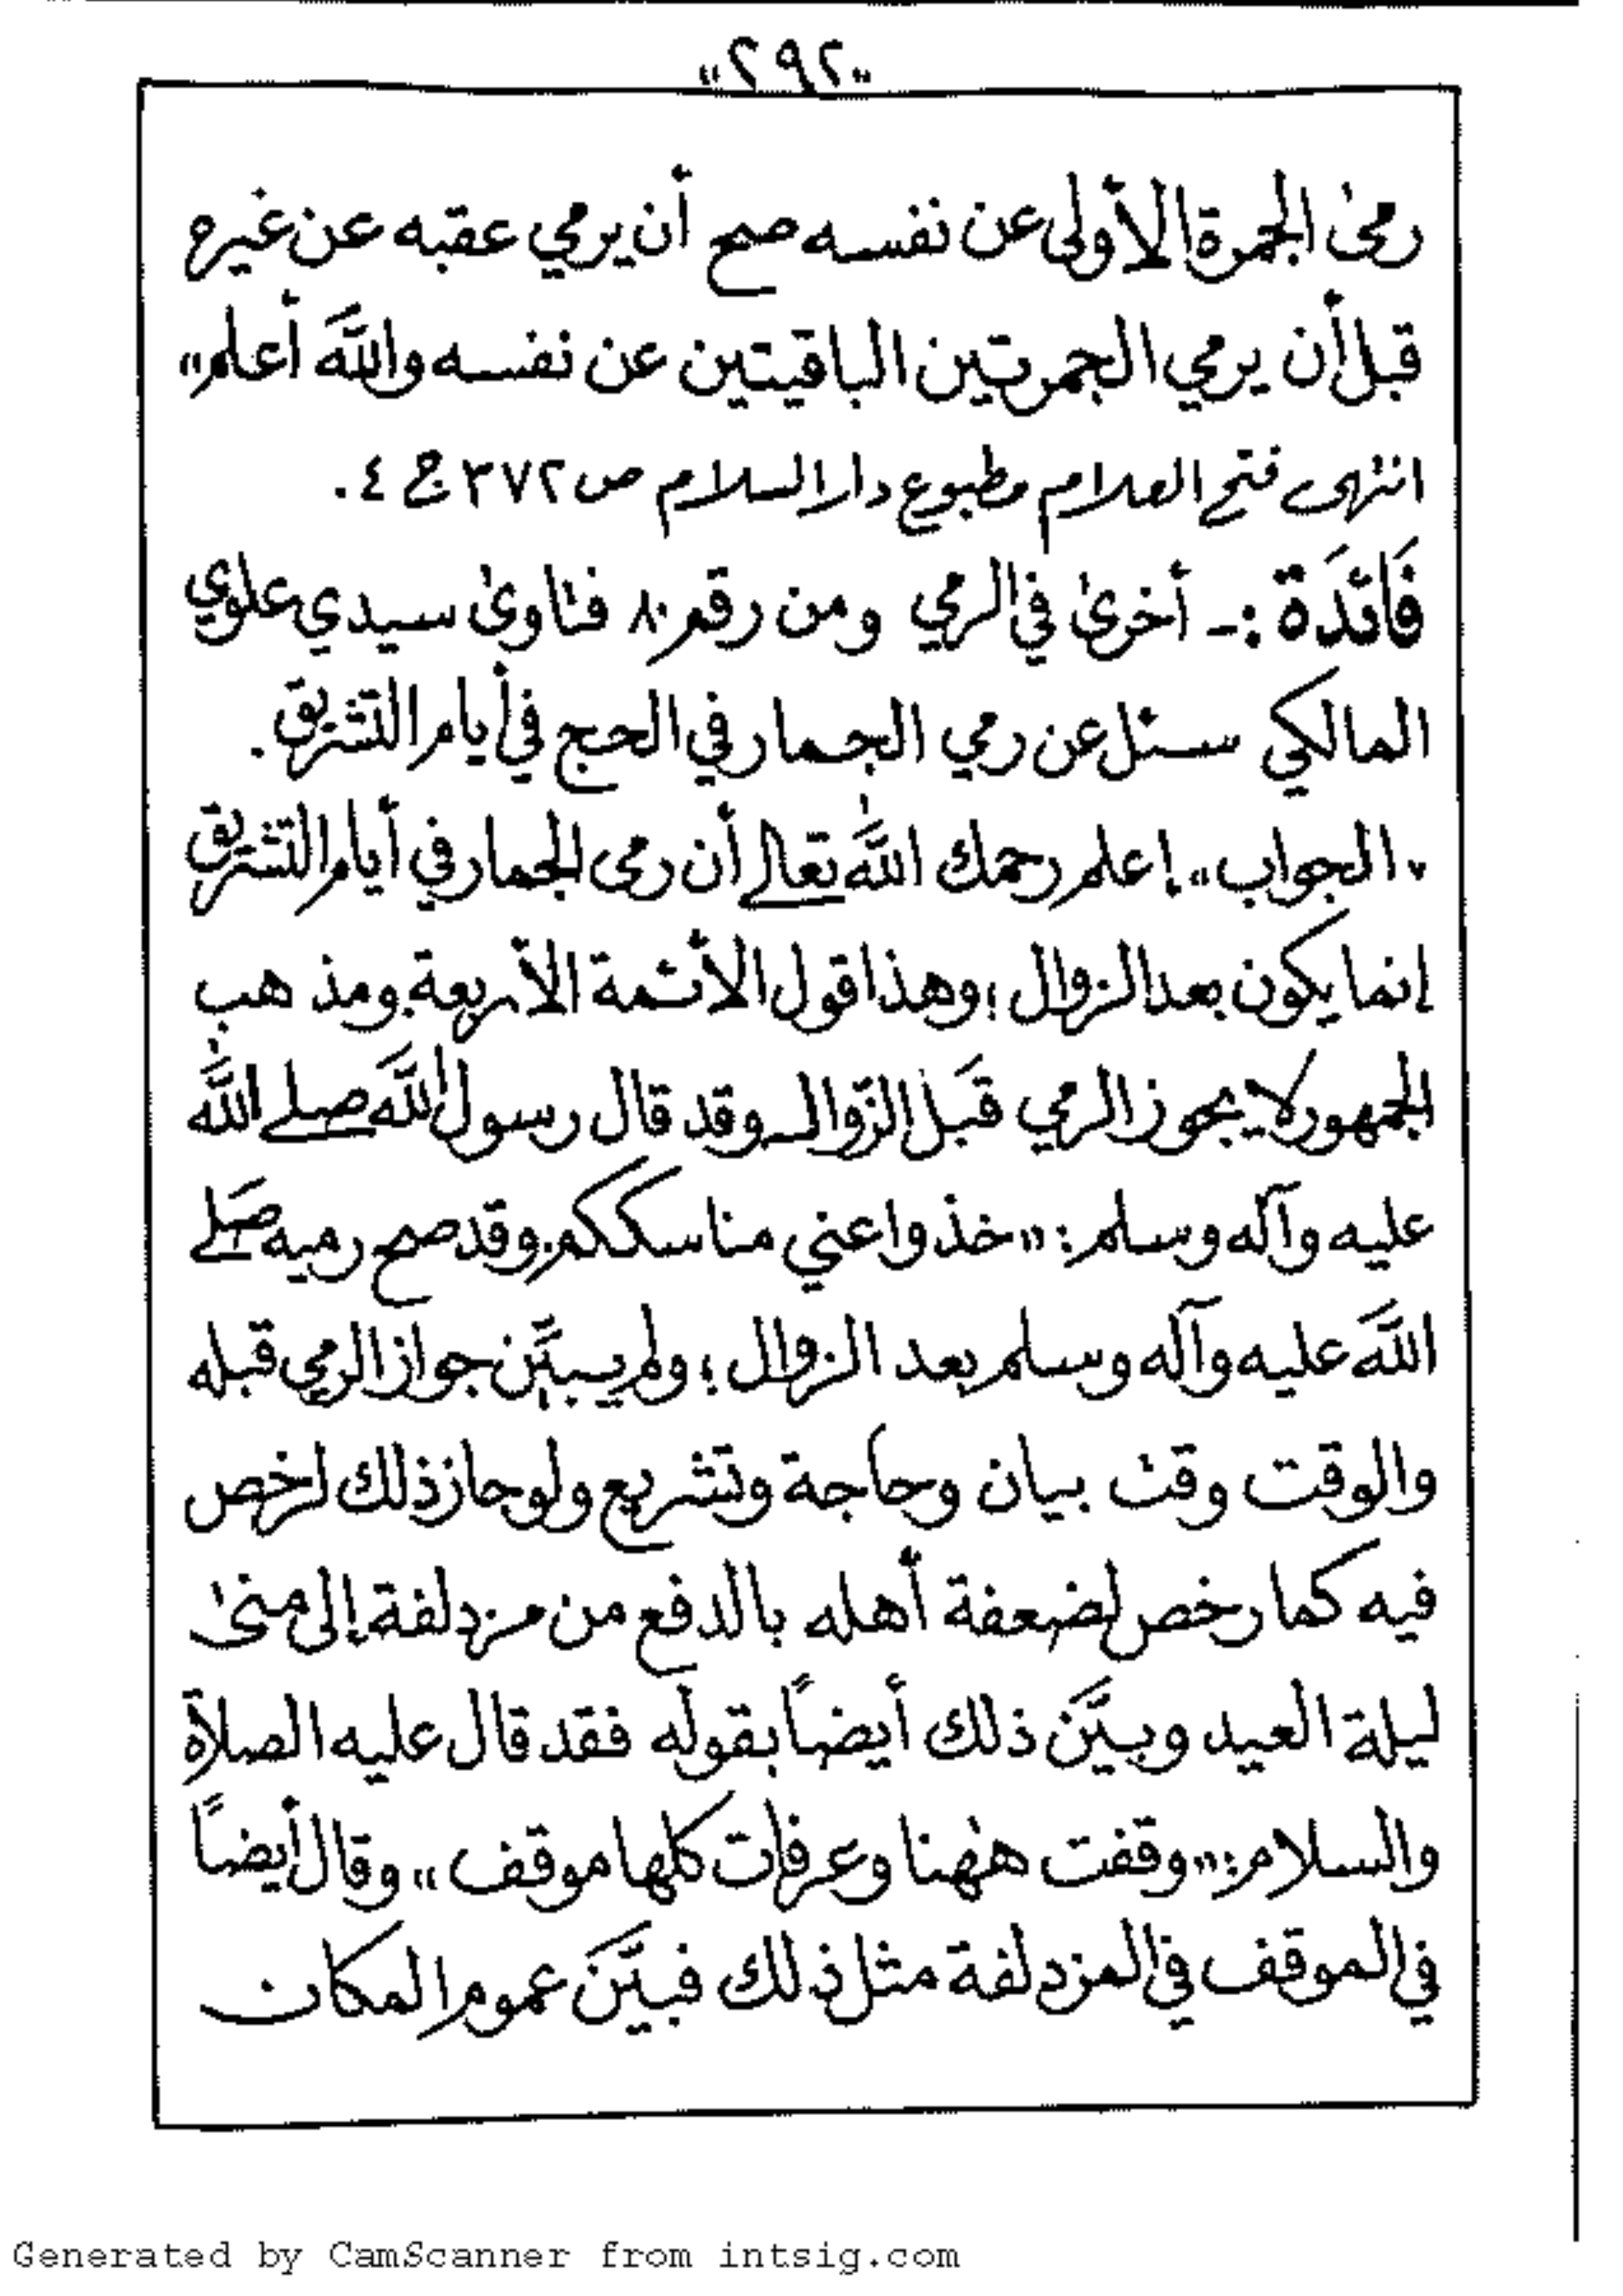 "٢٩٢"
رمىٰ الجمرة الأولى عن نفسه صح أن يرمي عقبه عن غيره
قبل أن يرمي الجمرتين الباقيتين عن نفسه واللَّه أعلم"
انتهى فتح العلام مطبوع دار السلام ص ٣٧٢ ج ٤ .
فَائدَة :- أخرىٰ في الرمي ومن رقم ٨٠ فتاوىٰ سيدي علوي
المالكي سئل عن رمي الجمار في الحج في أيام التشريق .
"الجواب" إعلم رحمك اللَّه تعالى أن رمى الجمار في أيام التشريق
إنما يكون بعد الزوال ؛ وهذا قول الأئمة الأربعة ومذهب
الجمهور لا يجوز الرمي قَبل الزّوال وقد قال رسول اللَّه صلى اللَّه
عليه وآله وسلم : "خذوا عني مناسككم" وقد صح رميه صَلى
اللَّه عليه وآله وسلم بعد الزوال ؛ ولم يبيِّن جواز الرمي قبله
والوقت وقت بيان وحاجة وتشريع ولو جاز ذلك لرخص
فيه كما رخص لضعفة أهله بالدفع من مزدلفة إلى منىٰ
ليلة العيد وبيَّن ذلك أيضاً بقوله فقد قال عليه الصلاة
والسلام : "وقفت هٰهنا وعرفات كلها موقف" وقال أيضاً
في الموقف في المزدلفة مثل ذلك فبيَّن عموم المكان
Generated by CamScanner from intsig.com